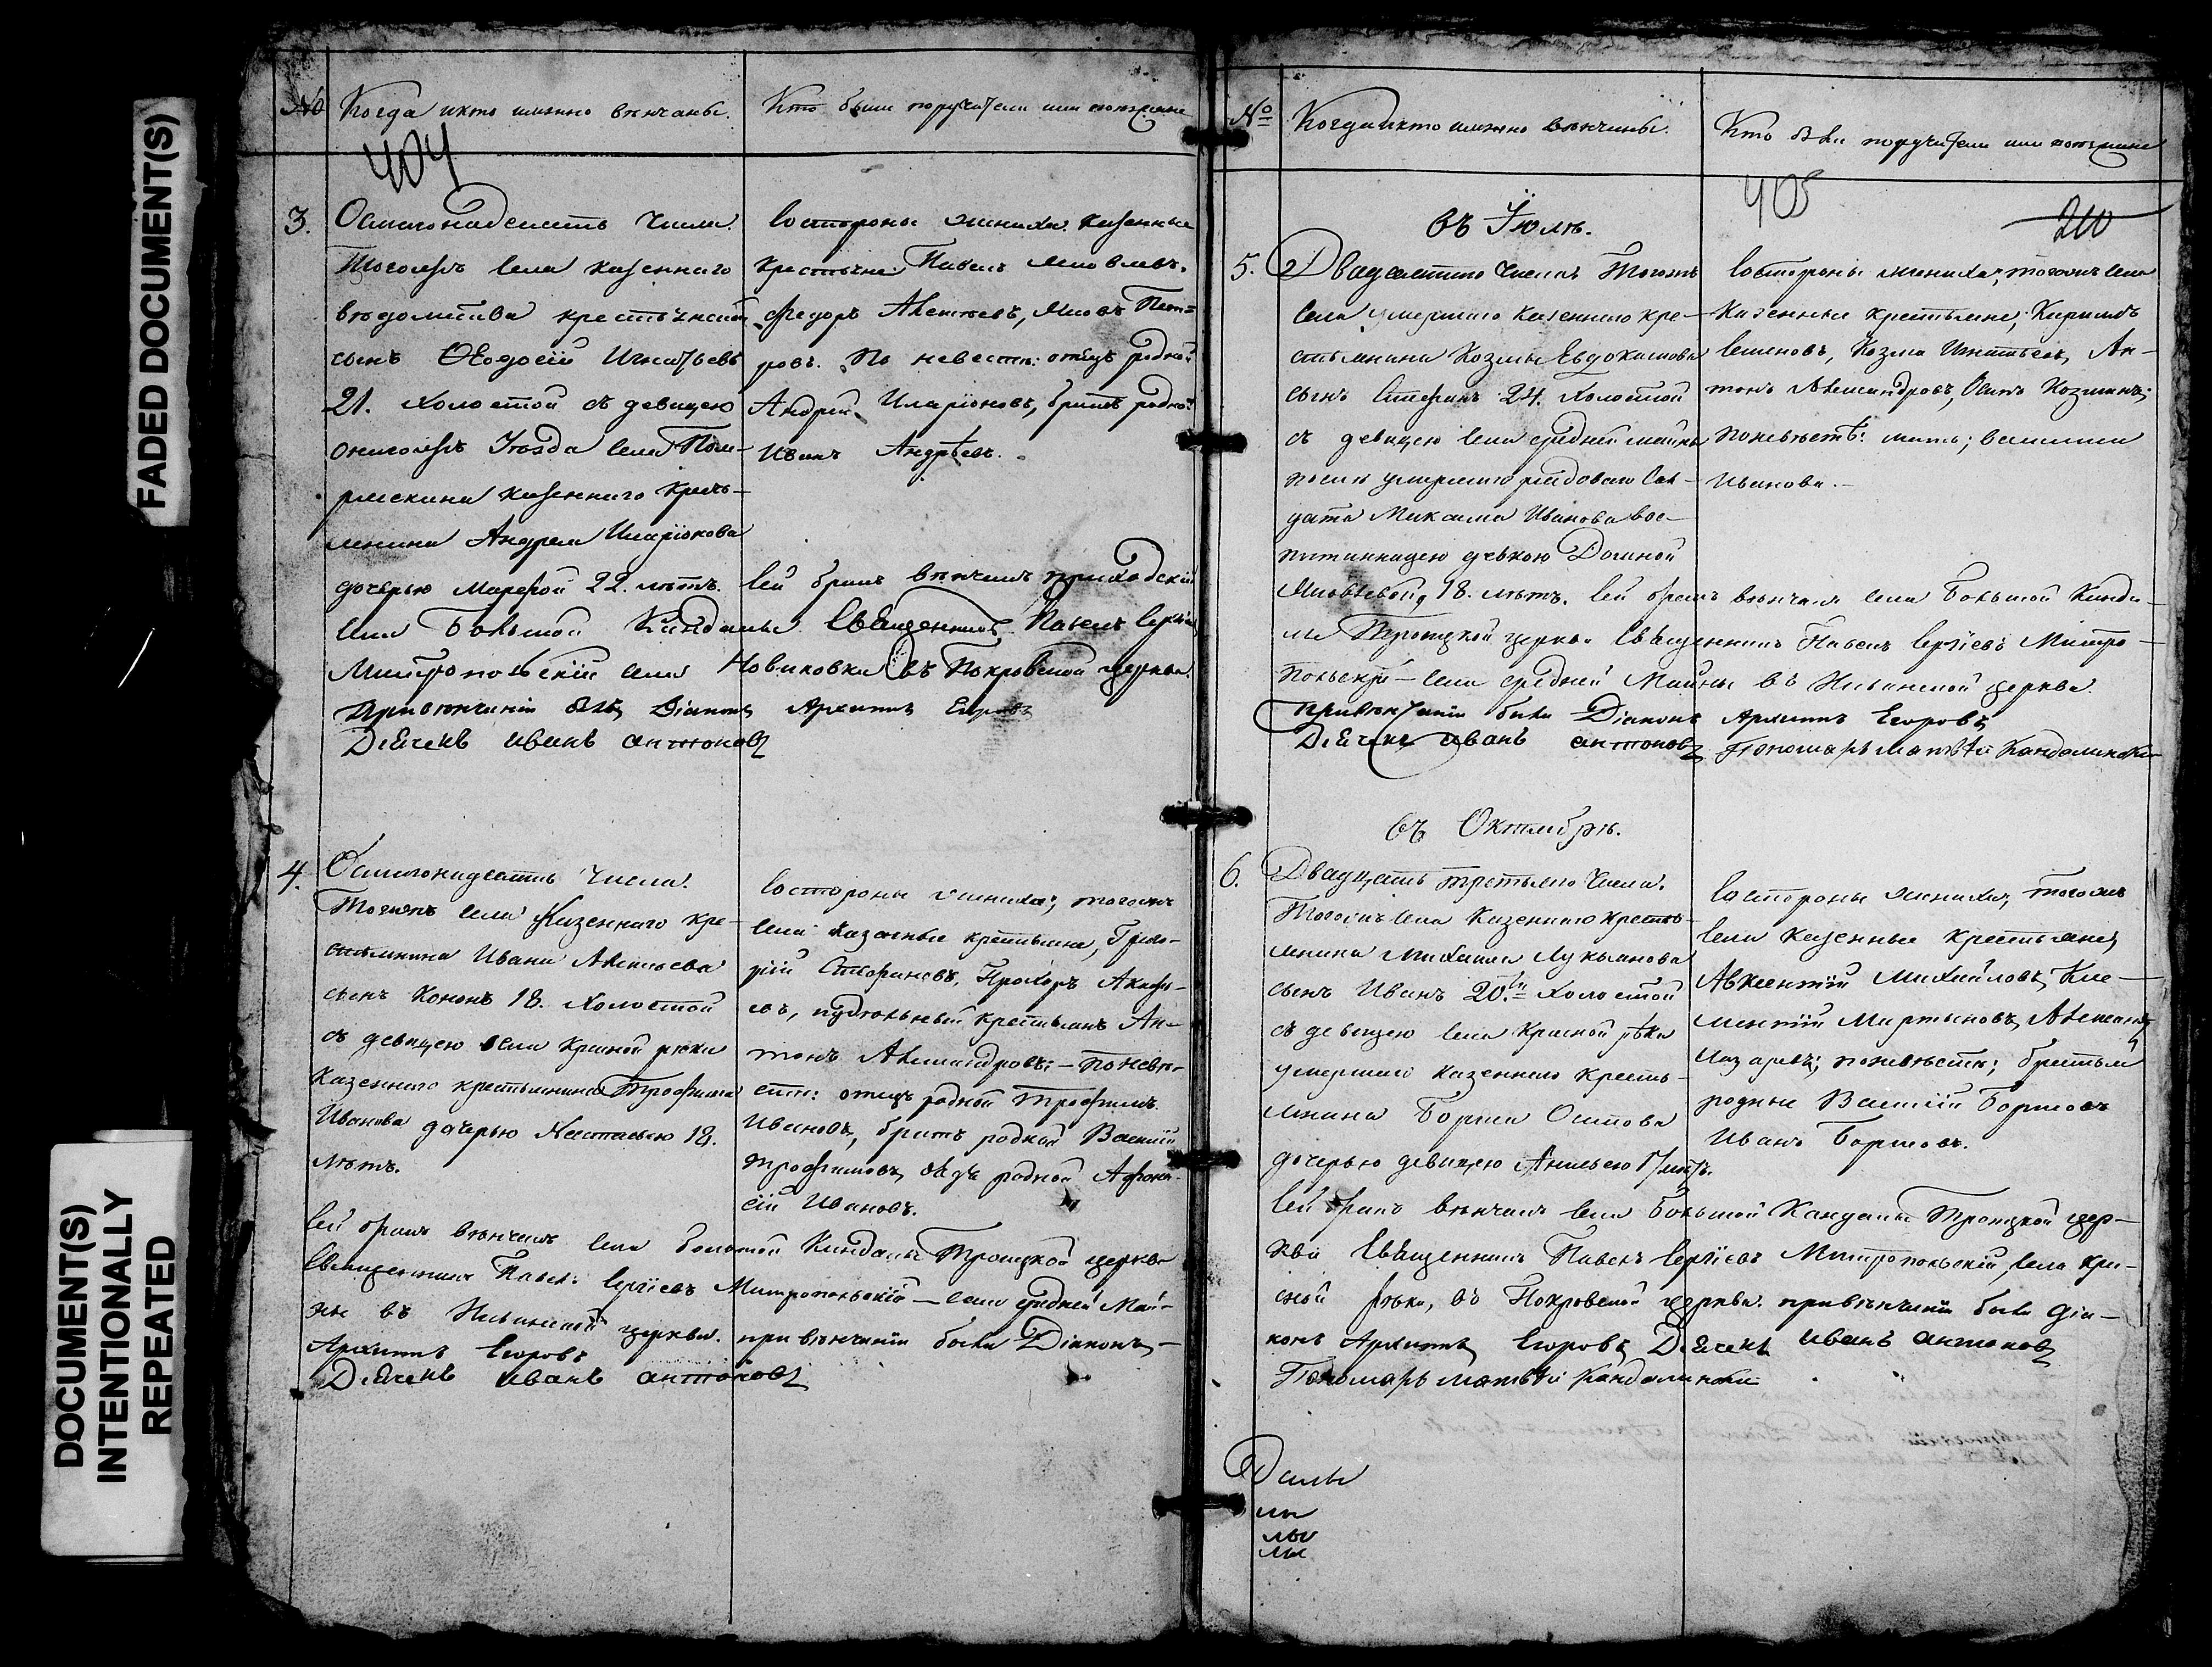 FADED DOCUMENT(S)
DOCUMENT(S)
INTENTIONALLY
REPEATED
№ Когда и кто именно венчаны. Кто были поручители или поезжане
404
3. Осмогонадесять числа.
Тогожъ села казеннаго
ведомства крестьянской
сынъ Ѳеодосій Игнатьевъ
21. холостой съ девицею
оногожъ уѣзда села
казеннаго кресть-
янина Андрея Иларіонова
дочерью Марѳой 22. лѣтъ.
Состороны жениха казенные
крестьяне Павелъ
Федоръ Алексеевъ, Пет-
ровъ. По невесте: отецъ родной
Андрей Иларіоновъ, братъ родной
Иванъ Андрѣевъ.
Сей бракъ венчалъ приходскій
села Большой Кандалы Священникъ Павелъ Сергіевъ
Митропольскій села Новиковки въ Покровской церкви.
При венчаніи былъ Діаконъ Архиппъ Егоровъ
Дьячекъ иванъ антоновъ
4. Осмогонадесять числа.
Тогожъ села Казеннаго кре-
стьянина Ивана Алексеева
сынъ Кононъ 18. холостой
съ девицею села Красной реки
Казеннаго крестьянина Трофима
Иванова дочерью Настасьею 18.
лѣтъ.
Состороны жениха; тогожъ
села казенные крестьяне, Григо-
рій Стефановъ, Прохоръ
евъ, удельный крестьянъ Ан-
тонъ Александровъ; – поневе-
сте: отецъ родной Трофимъ
Ивановъ, братъ родной Василій
Трофимовъ, дядя родной Афана-
сій Ивановъ.
Сей бракъ венчалъ села большой Кандалы Троицкой церкви
Священникъ Павелъ Сергіевъ Митропольскій – села средней Май-
ны въ Ильинской церкви. при венчаніи были Діаконъ –
Архиппъ Егоровъ
Дьячекъ иванъ антоновъ
№ Когда и кто именно венчаны. Кто были поручители или поезжане
405
210
въ Іюлѣ.
5. Двадцатого числа Тогожъ
села умершаго казеннаго кре-
стьянина Козмы Евдокимова
сынъ Стефанъ 24. холостой
съ девицею села средней майны
умершаго рядоваго сол-
дата Максима Иванова вос-
питанницею девкою Домной
18. лѣтъ.
Состороны жениха; тогожъ села
Казенные крестьяне; Кирилъ
Семеновъ, Козма Игнатьевъ, Ан-
тонъ Александровъ, Осипъ Козминъ;
поневѣстѣ: мать;
Иванова. –
Сей бракъ венчалъ села Большой Канда-
лы Троицкой церкви Священникъ Павелъ Сергіевъ Митро-
польскій – села средней Майны въ Ильинской церкви.
привенчаніи были Діаконъ Архиппъ Егоровъ
Дьячекъ иванъ антоновъ Пономарь матвѣй Кандалинской
въ Октябрѣ.
6. Двадцать третьяго числа.
Тогожъ села Казеннаго кресть-
янина Михаила Лукьянова
сынъ Иванъ 20. холостой
съ девицею села Красной рѣки
умершаго казеннаго кресть-
янина Бориса Осипова
дочерью девицею 17 лѣтъ.
Состороны жениха, тогожъ
села казенные крестьяне
Авксентій Михайловъ, Кле-
ментій Мартыновъ,
Лазаревъ; поневѣсте; братья
родные Василій Борисовъ
Иванъ Борисовъ.
Сей бракъ венчалъ села большой Кандалы Троицкой цер-
кви Священникъ Павелъ Сергіевъ Митропольскій, села кра-
сной рѣки, въ Покровской церкви. привенчаніи были діа-
конъ Архиппъ Егоровъ Дьячекъ иванъ антоновъ
Пономарь матвѣй Кандалинской